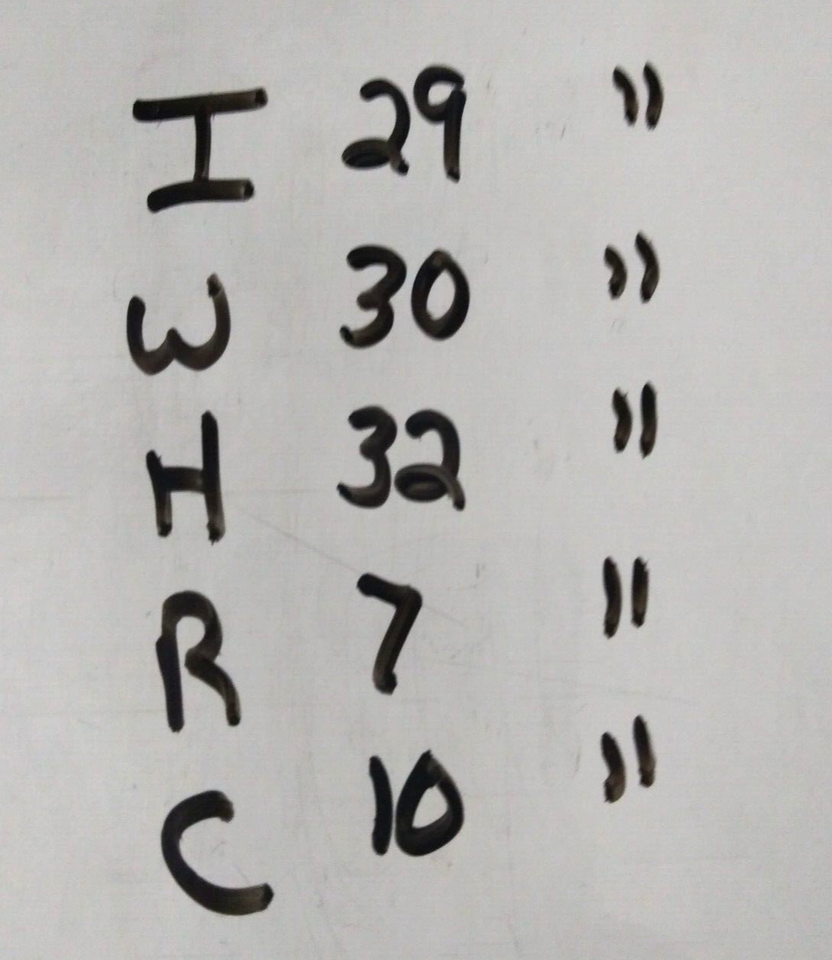 I 29 "
W 30 "
H 32 "
R 7 "
C 10 "